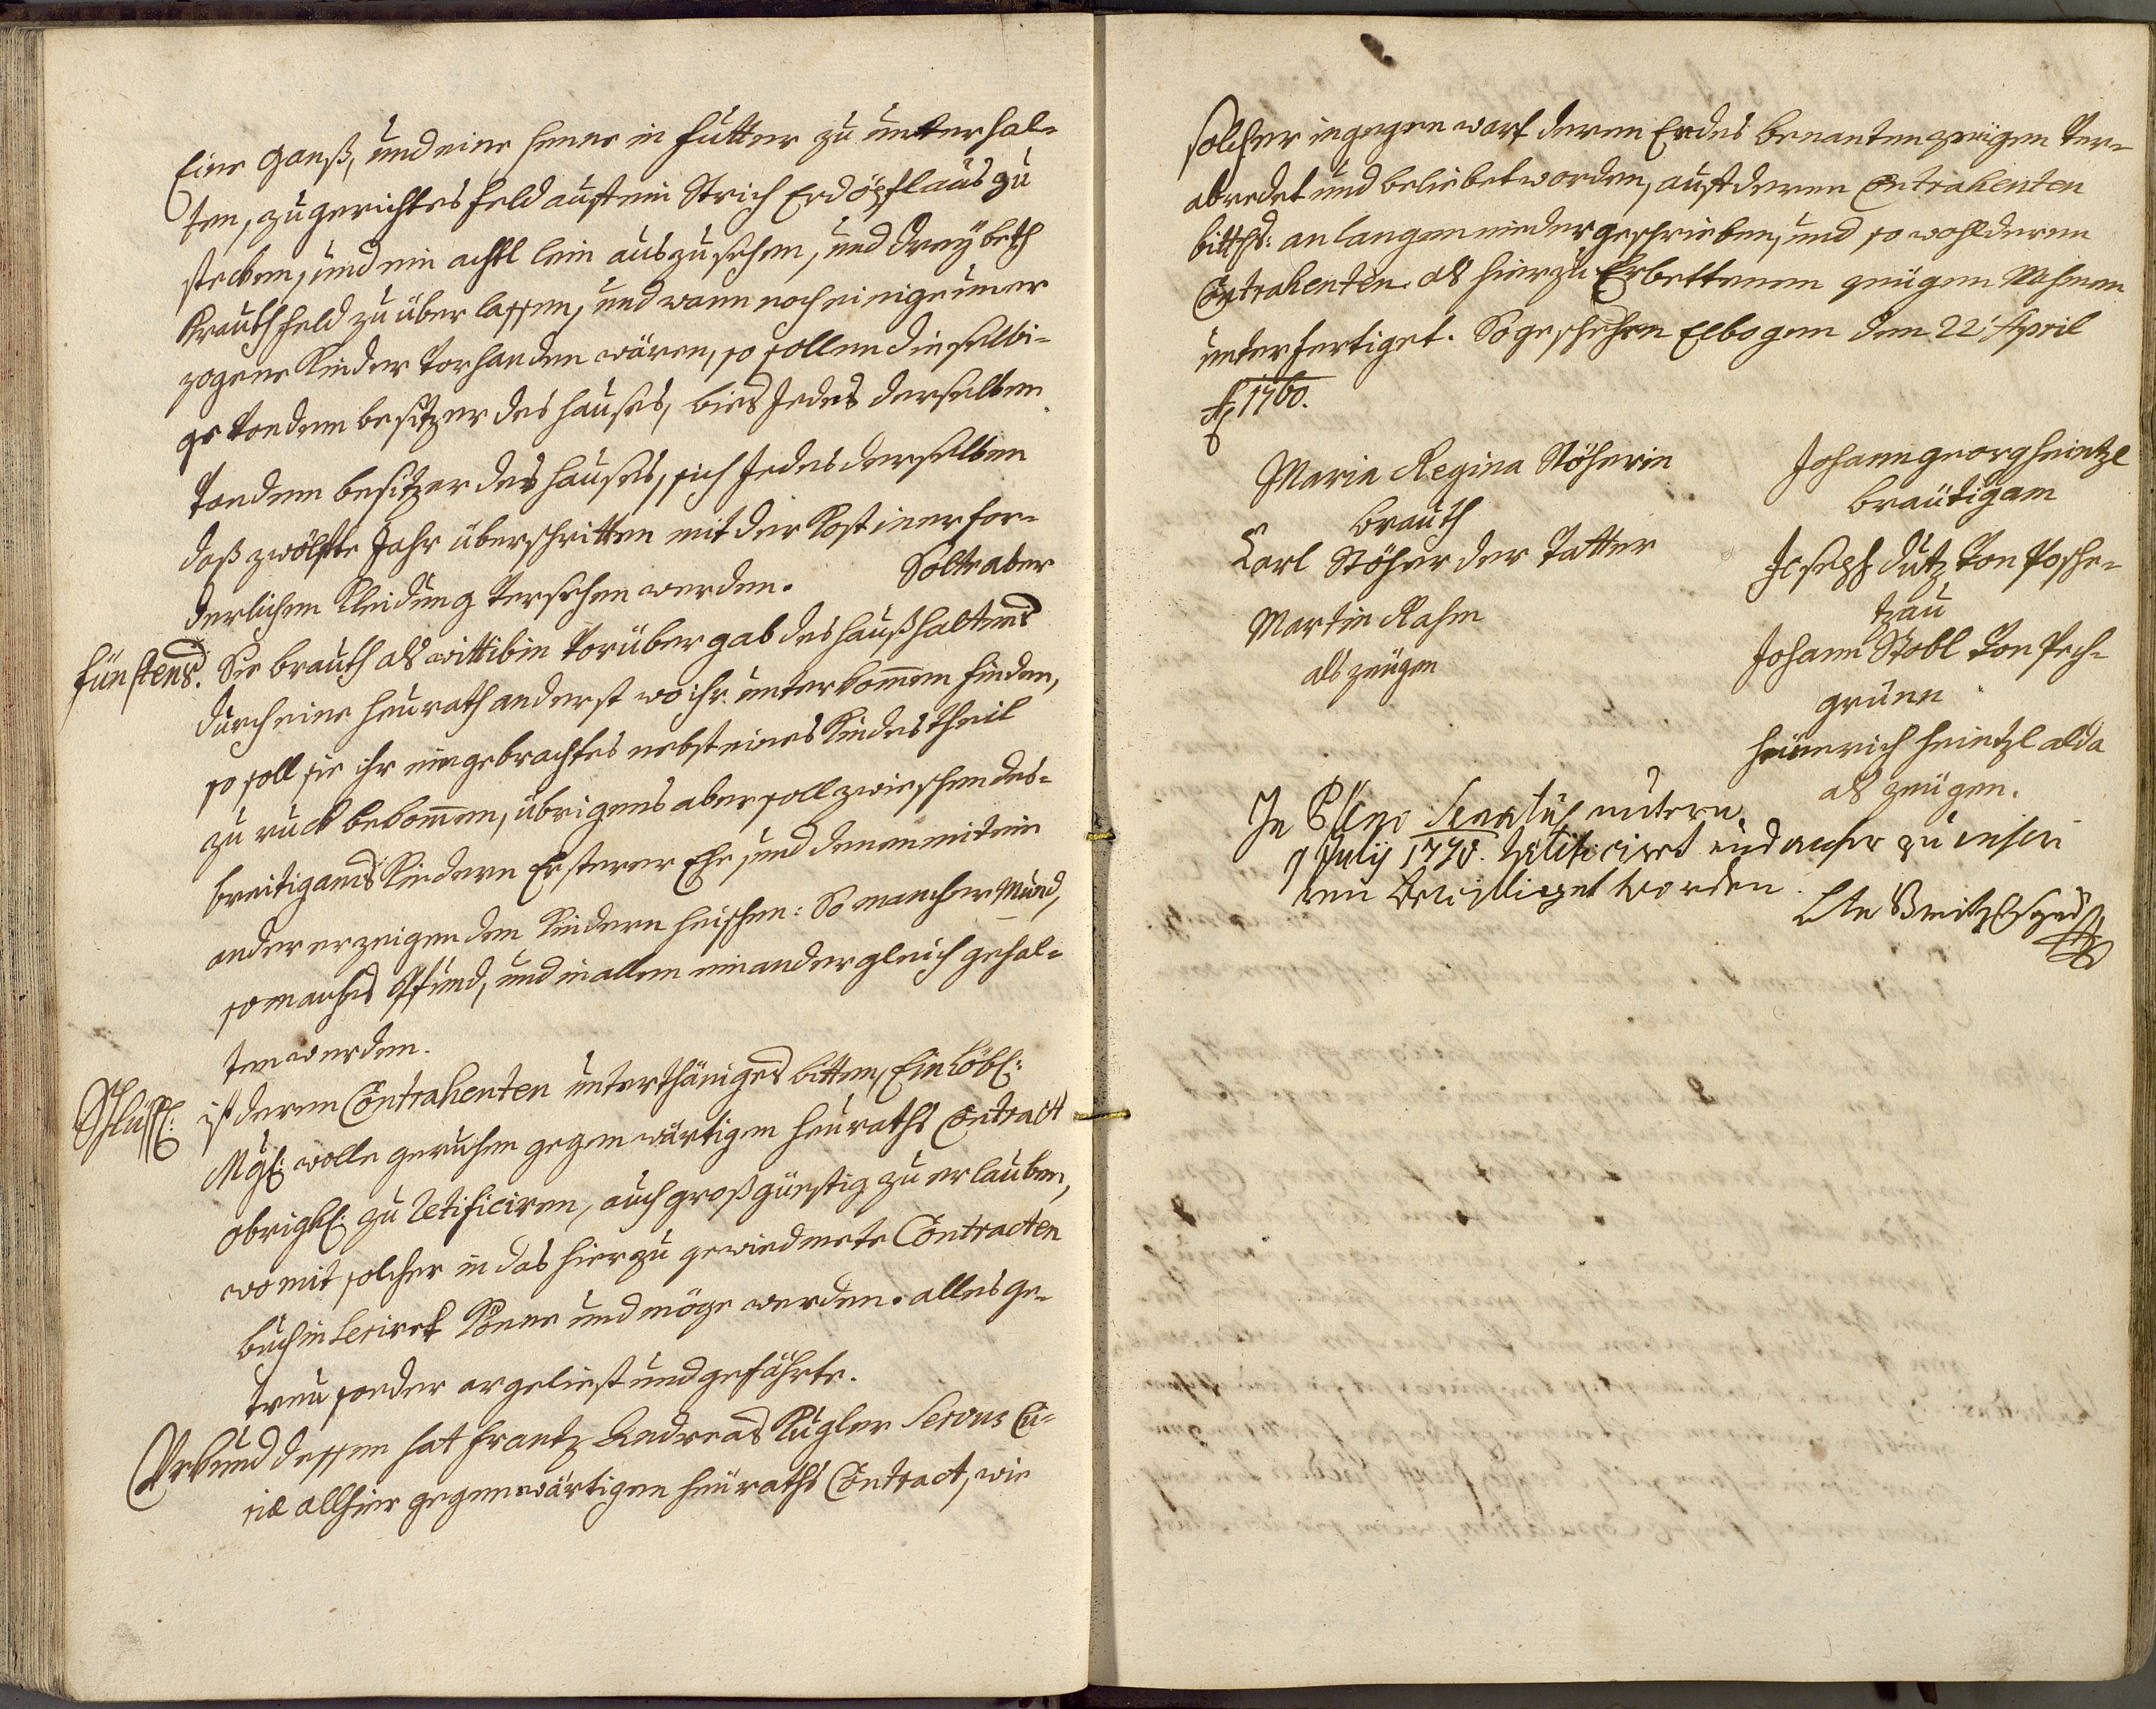 Eine Ganß, und eine henne in Futter zu unterhal-
ten, zugerichtes Feld auf ein Strich Erdöpfl aus zu
stecken, und ein achtl lein auszusehen, und Dreÿ beth
Krauthfeld zu überlassen, und wann noch einige uner
zogene Kinder vorhanden wären, so sollen dieselbi-
ge von dem besitzer des hauses, bies Jedes derselben
von dem besitzer des hauses, sich Jedes derselben
daß zwölfte Jahr überschritten mit der Kost in erfor-
derlichen Kleidung versehen werden. Solte aber
fünftens. Die brauth als wittibin vor übergab des haußhaltens
durch eine heurath anderst wo ihr unterkommen finden,
so soll sie ihr eingebrachtes nebst eines Kindes theil
zu ruck bekommen, übrigens aber soll zwieschen des-
breitigams Kindern Ersterer Ehe, und denen mitein
ander erzeigenden Kindern heischen: So mancher Mund,
so manches Pfund, und in allem einander gleich gehal-
ten werden.
Schlüssl: ist deren Contrahenten unterthäniges bitten, Ein Löbl:
Mgl: wolle geruhen gegenwärtigen heuraths Contract
obrigkl: zu retificiren, auch großgünstig zu erlauben,
womit solcher in das hierzu gewiedmete Contracten
buch inseriret könne und möge werden. alles ge-
treu sonder argeliest und gefährte.
Uhrkund dessen hat Frantz Andreas Kugler Servus Cu-
riæ allhier gegenwärtigen heuraths Contract, wie
solcher in gegenwart deren Endes benanten zeugen ver-
abredet und beliebet worden, auf deren Contrahenten
bitths: anlangen niedergeschrieben, und so wohl deren
Contrahenten als hierzu Erbettenen zeugen Nahmen
unterfertiget. So geschehen Elbogen den 22: April
1760.
Maria Regina Stöherin
brauth
Carl Stöher der Vatter
Martin Rahm
als zeugen
Johann georg heintzl
bräutigam
Joseph Dutz von Posche-
tzau
Johann Stobl von Pech-
grünn
heinrich heintzl alda
als zeugen.
In Pleno Senatus unterm
9 Julij 1770. retificiret und anher zu inseri
ren bewilliget worden.